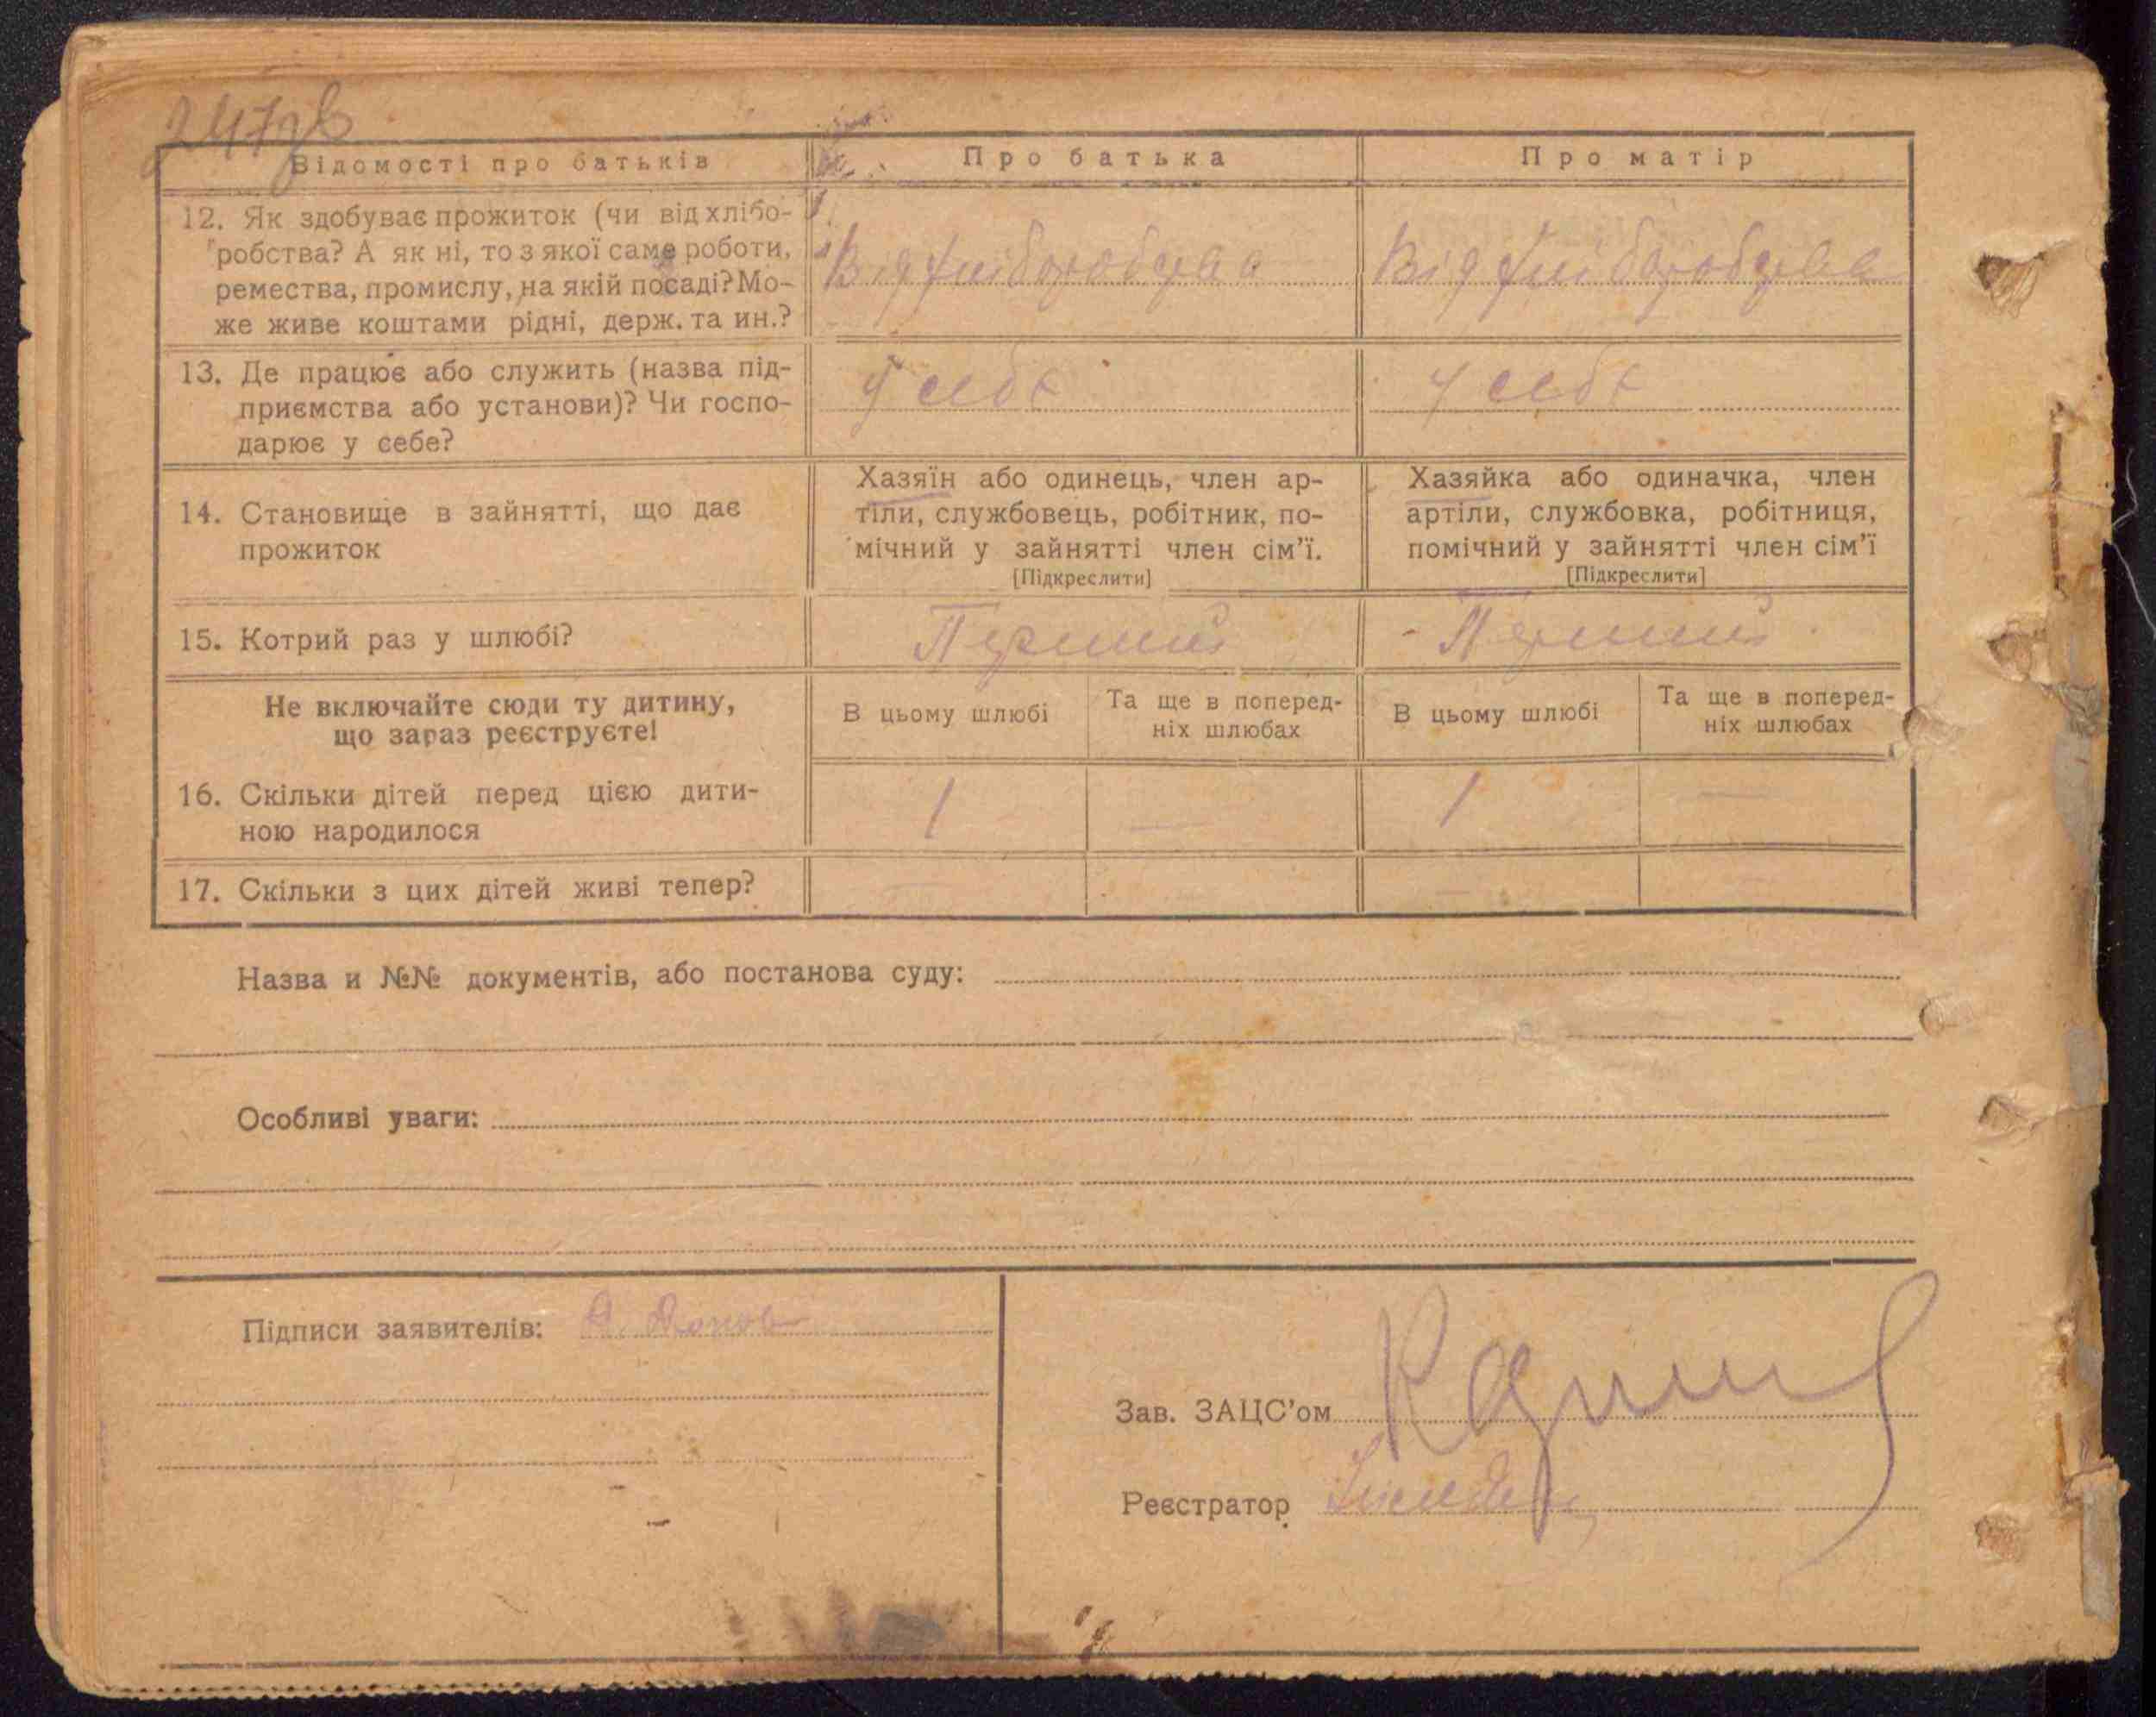 247зв
Відомості про батьків
Про батька
Про матір
12. Як здобуває прожиток (чи від хлібо-
робства? А як ні, то з якої саме роботи,
ремества, промислу, на якій посаді? Мо-
же живе коштами рідні, держ. та ин.?
Від хліборобства
Від хліборобства
13. Де працює або служить (назва під-
приємства або установи)? Чи госпо-
дарює у себе?
У себе
У себе
14. Становище в зайнятті, що дає
прожиток
Хазяїн або одинець, член ар-
тіли, службовець, робітник, по-
мічний у зайнятті член сім’ї.
[Підкреслити]
Хазяйка або одиначка, член
артіли, службовка, робітниця,
помічний у зайнятті член сім’ї
[Підкреслити]
15. Котрий раз у шлюбі?
Перший
Перший
Не включайте сюди ту дитину,
що зараз реєструєте!
В цьому шлюбі
Та ще в поперед-
ніх шлюбах
В цьому шлюбі
Та ще в поперед-
ніх шлюбах
16. Скільки дітей перед цією дити-
ною народилося
1
—
1
—
17. Скільки з цих дітей живі тепер?
—
—
—
Назва и №№ документів, або постанова суду:
Особливі уваги:
Підписи заявителів:
Зав. ЗАЦС’ом
Реєстратор